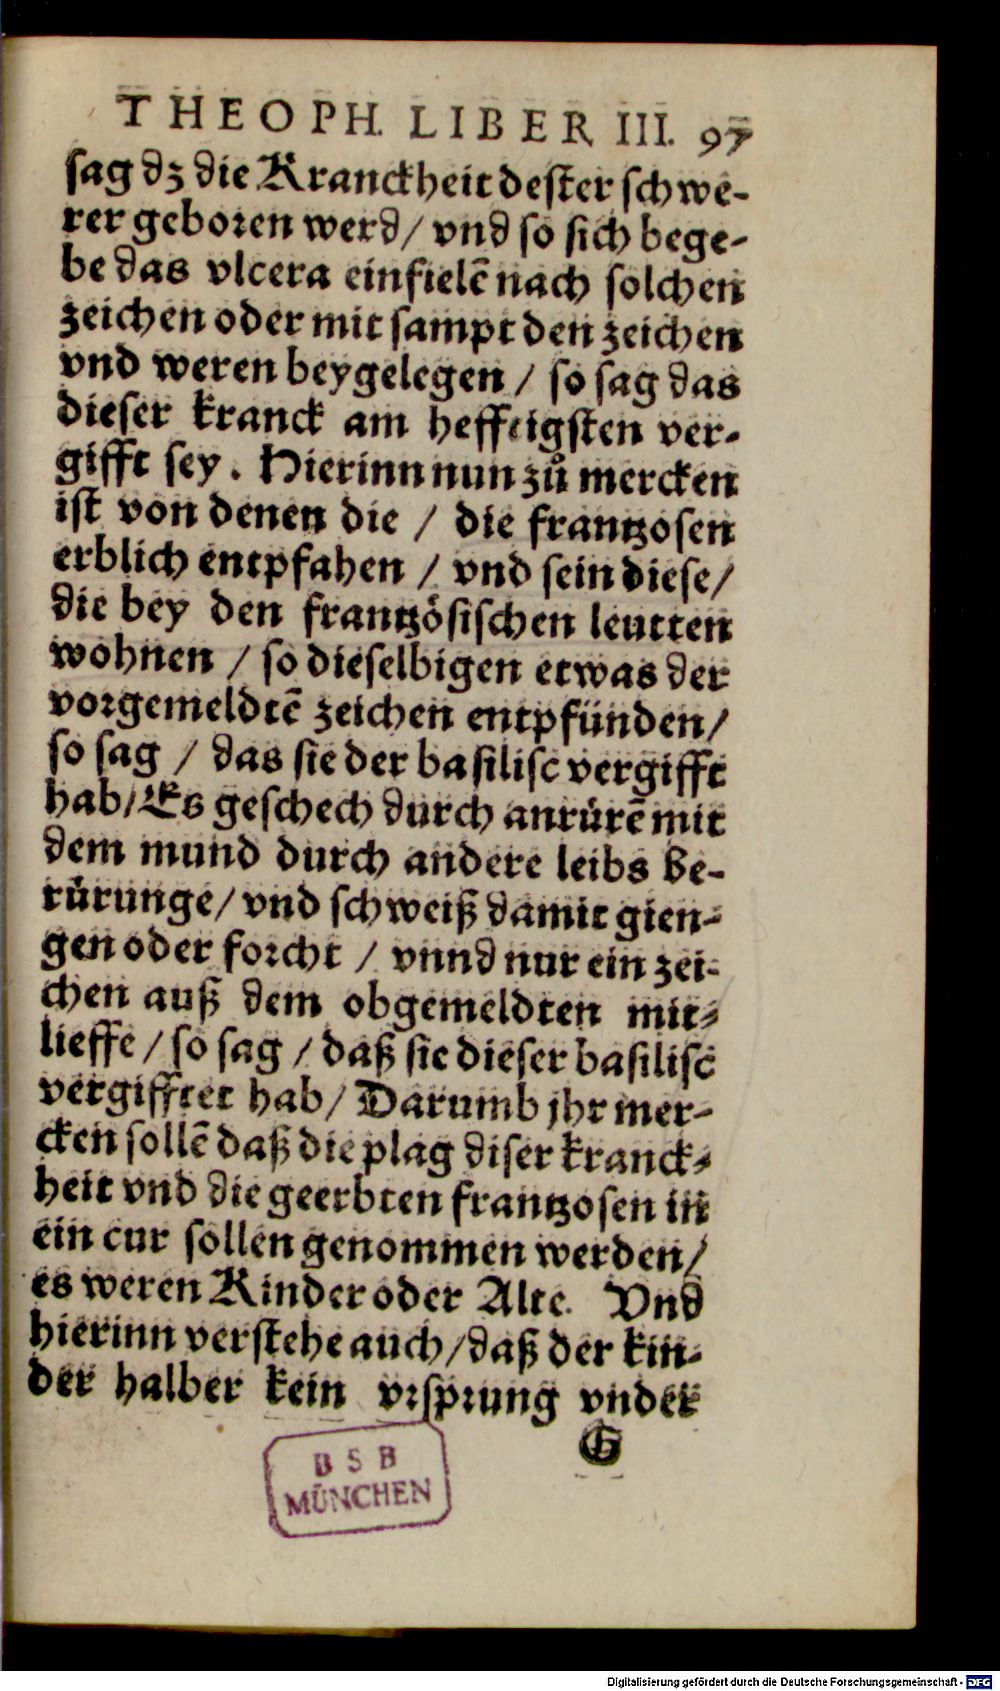 THEOPH. LIBER III. 97
sag dz die Kranckheit dester schwe-
rer geboren werd/ vnd so sich bege-
be das vlcera einfielē nach solchen
zeichen oder mit sampt den zeichen
vnd weren beygelegen / so sag das
dieser kranck am hefftigsten ver-
gifft sey. Hierinn nun zů mercken
ist von denen die / die frantzosen
erblich entpfahen / vnd sein diese/
die bey den frantzösischen leutten
wohnen / so dieselbigen etwas der
vorgemeldtē zeichen entpfünden/
so sag / das sie der basilisc vergifft
hab/ Es geschech durch anrürē mit
dem mund durch andere leibs be-
rürunge/ vnd schweiß damit gien-
gen oder forcht / vnnd nur ein zei-
chen auß dem obgemeldten mit-
lieffe/ so sag / daß sie dieser basilisc
vergifftet hab/ Darumb jhr mer-
cken sollē daß die plag diser kranck-
heit vnd die geerbten frantzosen in
ein cur sollen genommen werden/
es weren Kinder oder Alte. Vnd
hierinn verstehe auch/ daß der kin-
der halber kein vrsprung vnder
G
BSB
MÜNCHEN
Digitalisierung gefördert durch die Deutsche Forschungsgemeinschaft - DFG